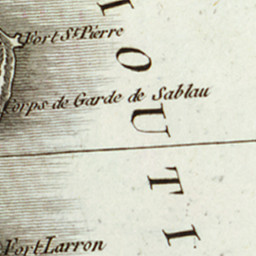 Fort St. Pierre
Corps de Garde de Sablau
Fort Larron
IOUTI